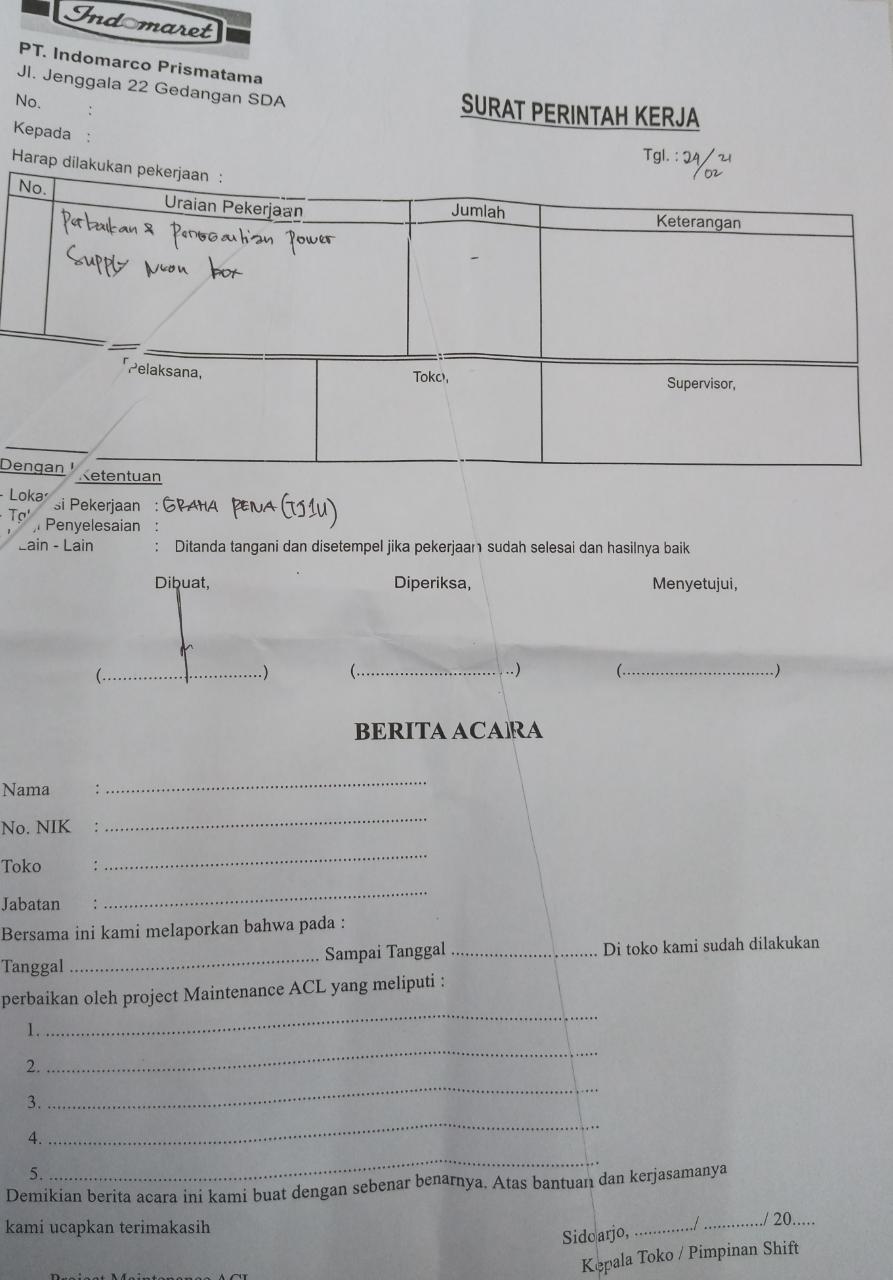 Indomaret
PT. Indomarco Prismatama
Jl. Jenggala 22 Gedangan SDA
No. :
Kepada :
Harap dilakukan pekerjaan :
SURAT PERINTAH KERJA
Tgl. : 24/02 21
No. Uraian Pekerjaan Jumlah Keterangan
Perbaikan & Penggantian Power -
Supply Neon box
Pelaksana, Toko, Supervisor,
Dengan Ketentuan
- Lokasi Pekerjaan : GRAHA PENA (TJ1U)
- Tgl Penyelesaian :
- Lain - Lain : Ditanda tangani dan disetempel jika pekerjaan sudah selesai dan hasilnya baik
Dibuat, Diperiksa, Menyetujui,
(..............................) (..............................) (..............................)
BERITA ACARA
Nama : ..............................
No. NIK : ..............................
Toko : ..............................
Jabatan : ..............................
Bersama ini kami melaporkan bahwa pada :
Tanggal .............................. Sampai Tanggal .............................. Di toko kami sudah dilakukan
perbaikan oleh project Maintenance ACL yang meliputi :
1. ..............................
2. ..............................
3. ..............................
4. ..............................
5. ..............................
Demikian berita acara ini kami buat dengan sebenar benarnya. Atas bantuan dan kerjasamanya
kami ucapkan terimakasih
Sidoarjo, ............/ ............/ 20.....
Kepala Toko / Pimpinan Shift
Project Maintenance ACL